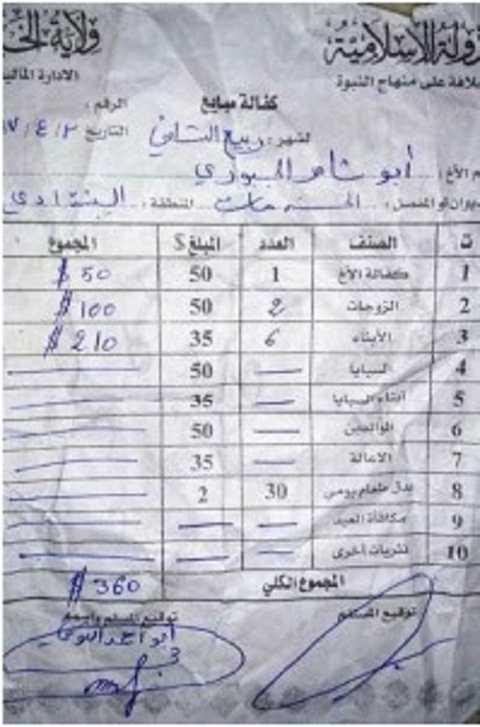 دولة الإسلامية ولاية الخ
خلافة على منهاج النبوة الادارة المالية
كفالة مبايع الرقم :
لشهر : ربيع الثاني التاريخ ٢/٤/
م الأخ : أبو الجبوري
الخدمات المنطقة :
ت الصنف العدد المبلغ $ المجموع
1 كفالة الأخ 1 50 $ 50
2 الزوجات 2 50 $ 100
3 الأبناء 6 35 $ 210
4 السبايا — 50 —
5 أبناء السبايا — 35 —
6 الوالدين — 50 —
7 الاعالة — 35 —
8 بدل طعام يومي 30 2 —
9 مكافأة العيد — — —
10 نثريات أخرى — — —
المجموع الكلي $ 360
توقيع المستلم توقيع المسلم واسمه
أبو أحمد